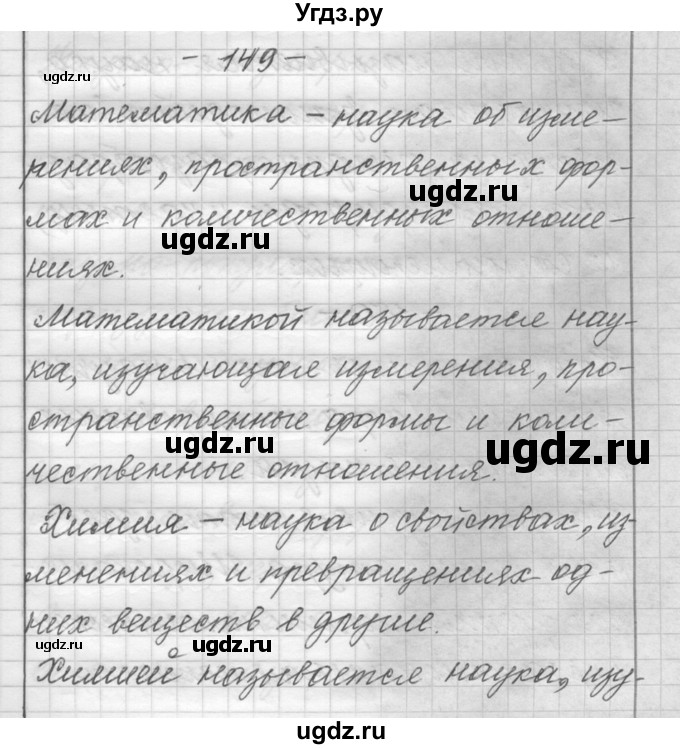 Угдз.ру
- 149 -
ugdz.ru
Математика – наука об изме-
рениях, пространственных фор-
ugdz.ru
мах и количественных отноше-
ugdz.ru
ниях.
Математикой называется нау-
ка, изучающая измерения, про-
странственные формы и коли-
ugdz.ru
ugdz.ru
чественные отношения.
Химия – наука о свойствах, из-
менениях и превращениях од-
них веществ в другие.
ugdz.ru
ugdz.ru
Химией называется наука, изу-
ugdz.ru